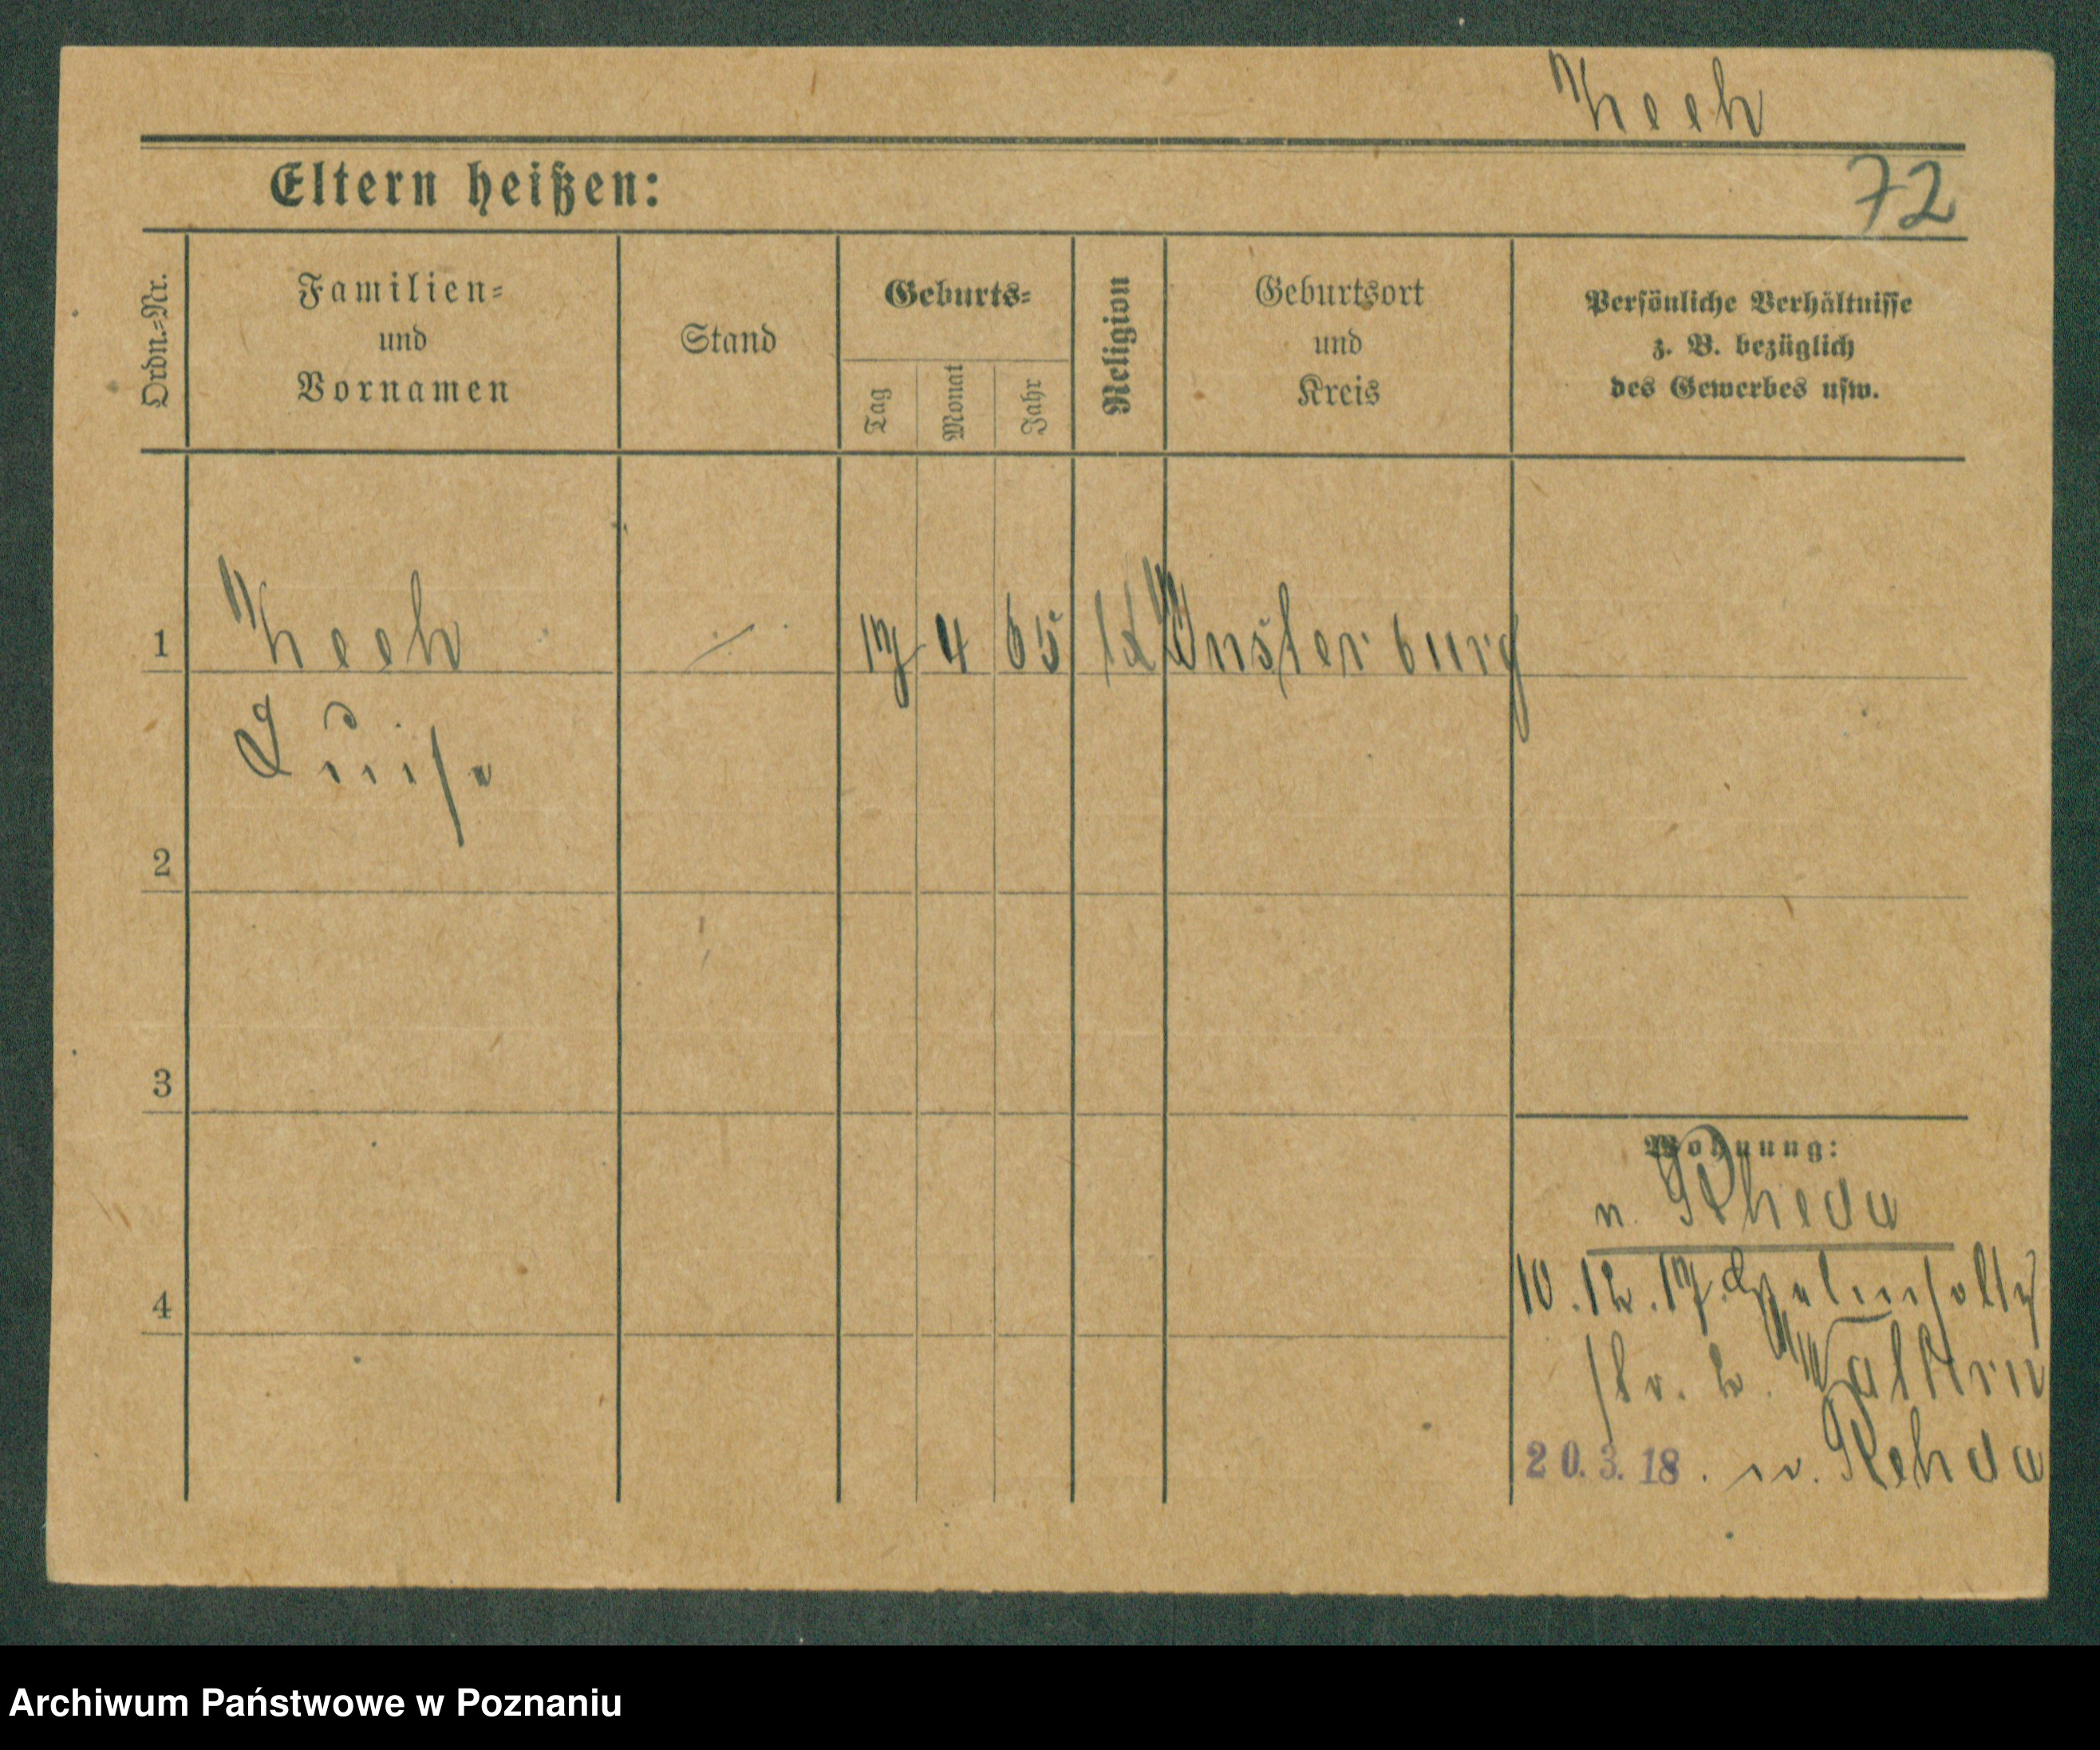 Keeh
Eltern heißen:
72
Ordn.-Nr.
Familien-
und
Vornamen
Stand
Geburts-
Tag
Monat
Jahr
Religion
Geburtsort
und
Kreis
Persönliche Verhältnisse
z. B. bezüglich
des Gewerbes usw.
1
Keeh
17 4 65
Insterburg
Luise
2
3
4
Wohnung:
n. Rheda
10.12.17.
20.3.18. n. Rehda
Archiwum Państwowe w Poznaniu